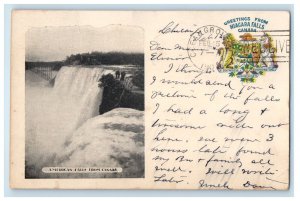 GREETINGS FROM
NIAGARA FALLS
CANADA
Chicago
Elinor
I thought I
would send you a
picture of the falls
I had a long &
tiresome ride out
here. we were 3
hours late found
my Bro & family all
well. Will write
Later. Uncle Dan
AMERICAN FALLS FROM CANADA